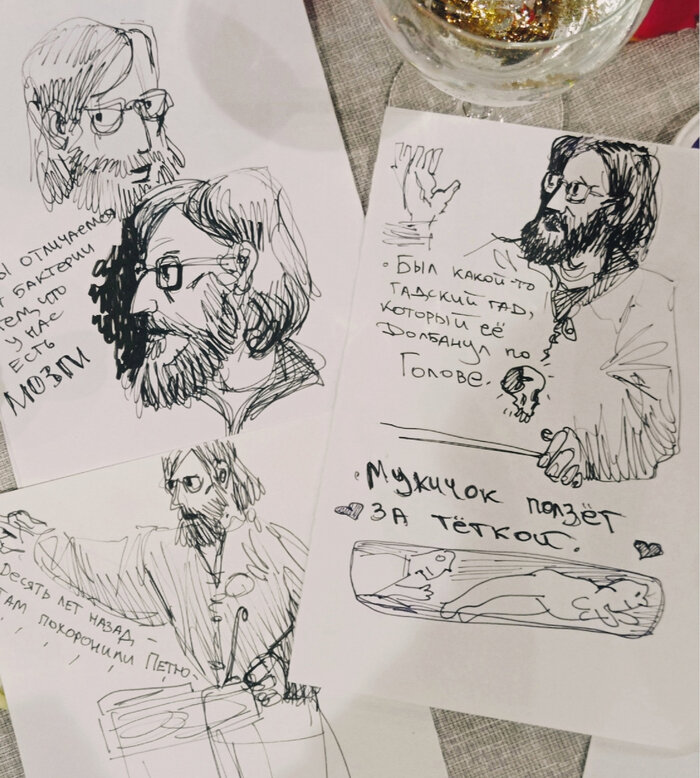 ы отличаемся
т бактерии
тем, что
у нас
есть
мозги
• Был какой-то
гадский гад,
который её
долбанул по
голове.
• Мужичок ползёт
за тёткой.
Десять лет назад, –
там похоронили Петю.